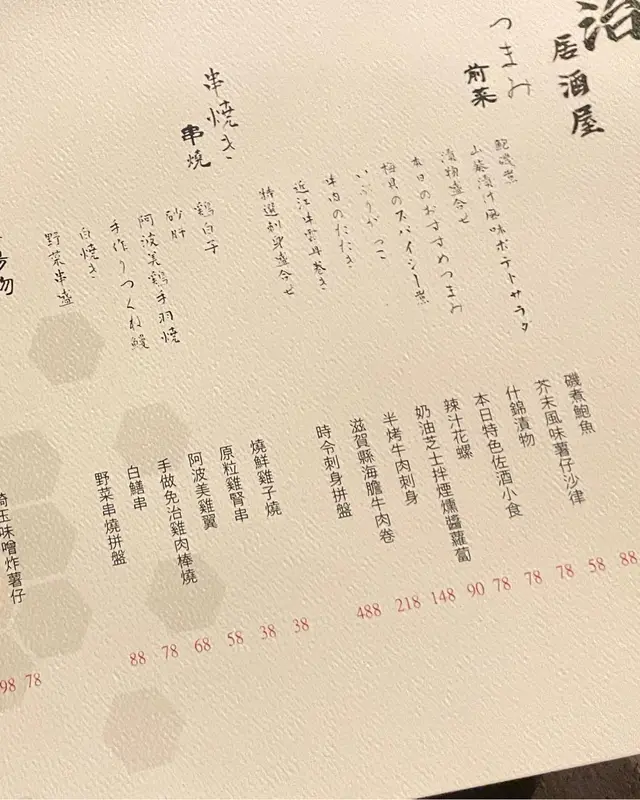 治
居酒屋
つまみ
前菜
鮑磯煮
山葵漬け風味ポテトサラダ
漬物盛合せ
本日のおすすめつまみ
梅貝のスパイシー煮
いぶりがっこ
牛肉のたたき
近江牛雲丹巻き
特選刺身盛合せ
磯煮鮑魚
芥末風味薯仔沙律
什錦漬物
本日特色佐酒小食
辣汁花螺
奶油芝士拌煙燻醬蘿蔔
半烤牛肉刺身
滋賀縣海膽牛肉卷
時令刺身拼盤
88
58
78
78
78
90
148
218
488
串焼き
串燒
鶏白子
砂肝
阿波美鶏手羽焼
手作りつくね鰻
白焼き
野菜串盛
燒鮮雞子燒
原粒雞腎串
阿波美雞翼
手做免治雞肉棒燒
白鱔串
野菜串燒拼盤
38
38
58
68
78
88
物
埼玉味噌炸薯仔
78
98